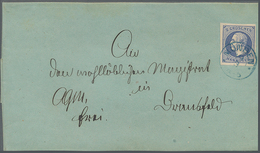 An
den wohllöblichen Magistrat
in
Dransfeld
frei.